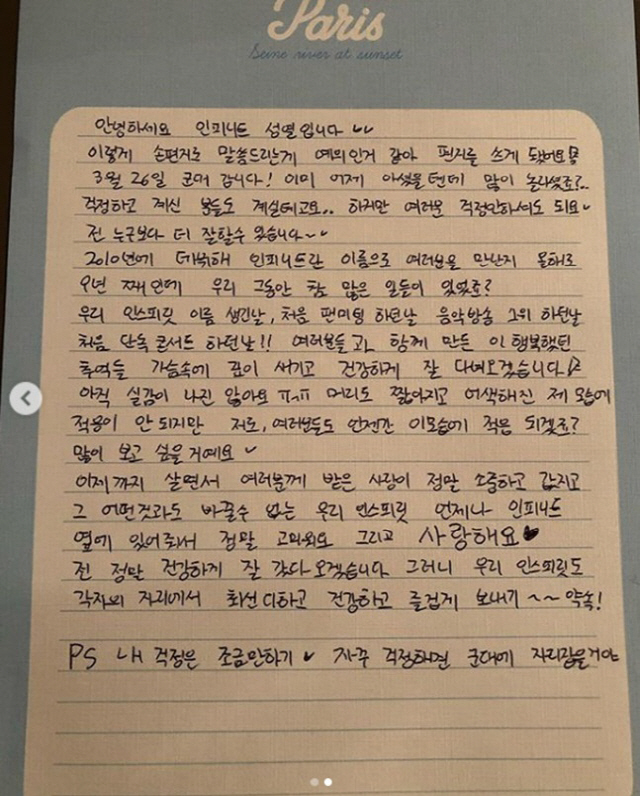 Paris
Seine river at sunset
안녕하세요 인피니트 성열입니다 ᴗᴗ
이렇게 손편지로 말씀드리는게 예의인거 같아 편지를 쓰게 됐어요
3월 26일 군대 갑니다! 이미 어제 아셨을텐데 많이 놀라셨죠?..
걱정하고 계신 분들도 계실테고요.. 하지만 여러분 걱정안하셔도 되요
전 누구보다 더 잘할수 있습니다~
2010년에 데뷔해 인피니트란 이름으로 여러분을 만난지 올해로
9년 째인데 우리 그동안 참 많은 일들이 있었죠?
우리 인스피릿 이름 생긴날, 처음 팬미팅 하던날 음악방송 1위 하던날
처음 단독 콘서트 하던날!! 여러분들과 함께 만든 이 행복했던
추억들 가슴속에 깊이 새기고 건강하게 잘 다녀오겠습니다
아직 실감이 나진 않아요 ㅠㅠ 머리도 짧아지고 어색해진 제 모습에
적응이 안 되지만 저도, 여러분들도 언젠간 이모습에 적응 되겠죠?
많이 보고 싶을거예요
이제까지 살면서 여러분께 받은 사랑이 정말 소중하고 값지고
그 어떤것과도 바꿀수 없는 우리 인스피릿 언제나 인피니트
옆에 있어줘서 정말 고마워요 그리고 사랑해요♥
전 정말 건강하게 잘 갔다오겠습니다 그러니 우리 인스피릿도
각자의 자리에서 최선 다하고 건강하고 즐겁게 보내기 ~~ 약속!
PS 내 걱정은 조금만하기 자꾸 걱정하면 군대에 자리잡을거야